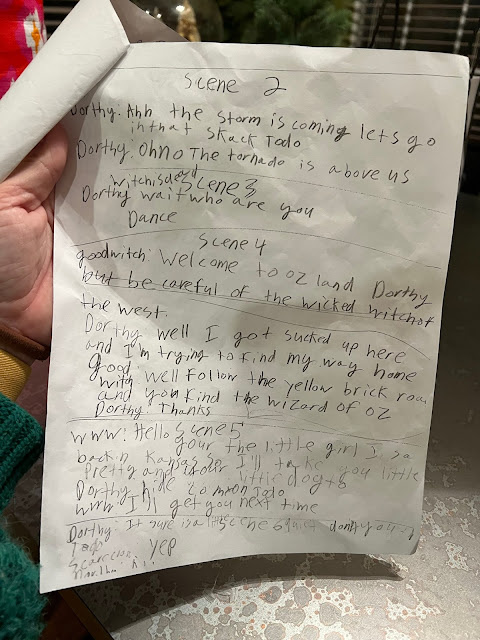 Scene 2
Dorthy: Ahh the storm is coming lets go
in that skack Todo
Dorthy: Oh no The tornado is above us
witch is dead Scene 3
Dorthy wait who are you
Dance
Scene 4
goodwitch: Welcome to oz land Dorthy
but be careful of the wicked witch of
the west.
Dorthy well I got sucked up here
and I'm trying to find my way home
Good
witch well follow the yellow brick
and you find the wizard of oz
Dorthy: Thanks
WWW: Hello Scene 5
your the little girl I
back in I'll take you little
Pretty and your little dog to
Dorthy hide Todo
I'll get you next time
Dorthy: It sure is a
Yep